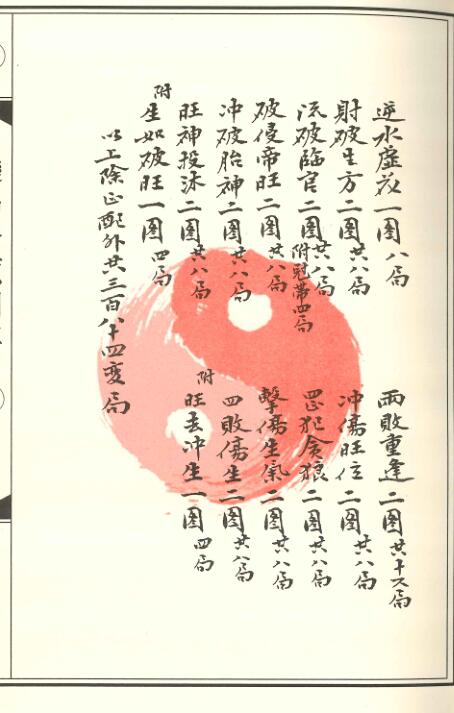 逆水虛花一图八局
兩敗重逢二图共十六局
財破生方二图共八局
冲傷旺位二图共八局
流破臨官二图共八局
附冠帶四局
罡犯貪狼二图共八局
破侵帝旺二图共八局
擊傷生氣二图共八局
冲破胎神二图共八局
四敗傷生二图共八局
旺神投沐二图共八局
附旺去冲生一图四局
附生如破旺一图四局
以上除正配外共三百八十四變局